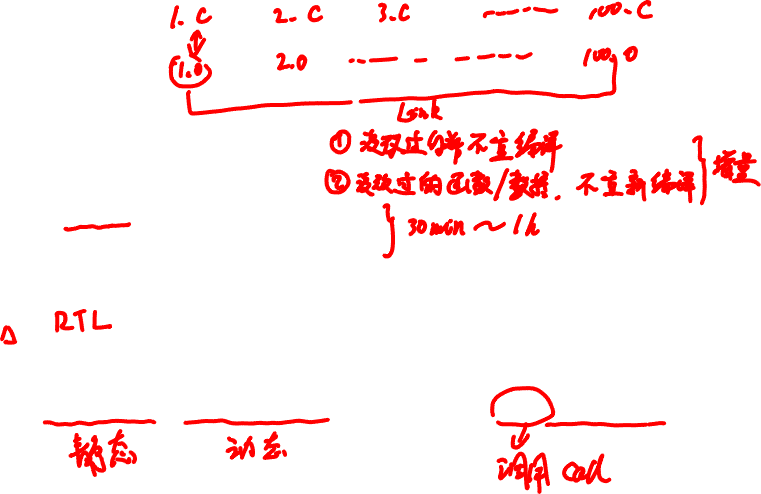 1.C 2.C 3.C ------ 100.C
1.0 2.0 ------ 100.0
Link
① 没改过的 不重编译
② 没改过的函数/数据. 不重新编译 } 增量
} 30min ～ 1h
△ RTL
静态 动态 调用 call